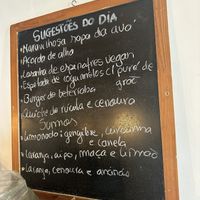 SUGESTÕES DO DIA
• Maravilhosa sopa da avó
• Açorda de alho
• Lasanha de espinafres vegan
• Espetada de cogumelos c/ puré de grão
• Burger de beterraba
• Quiche de rúcula e cenoura
Sumos
• Limonada; gengibre, curcuma e canela
• Laranja, aipo, maçã e limão
• Laranja, cenoura e ananás